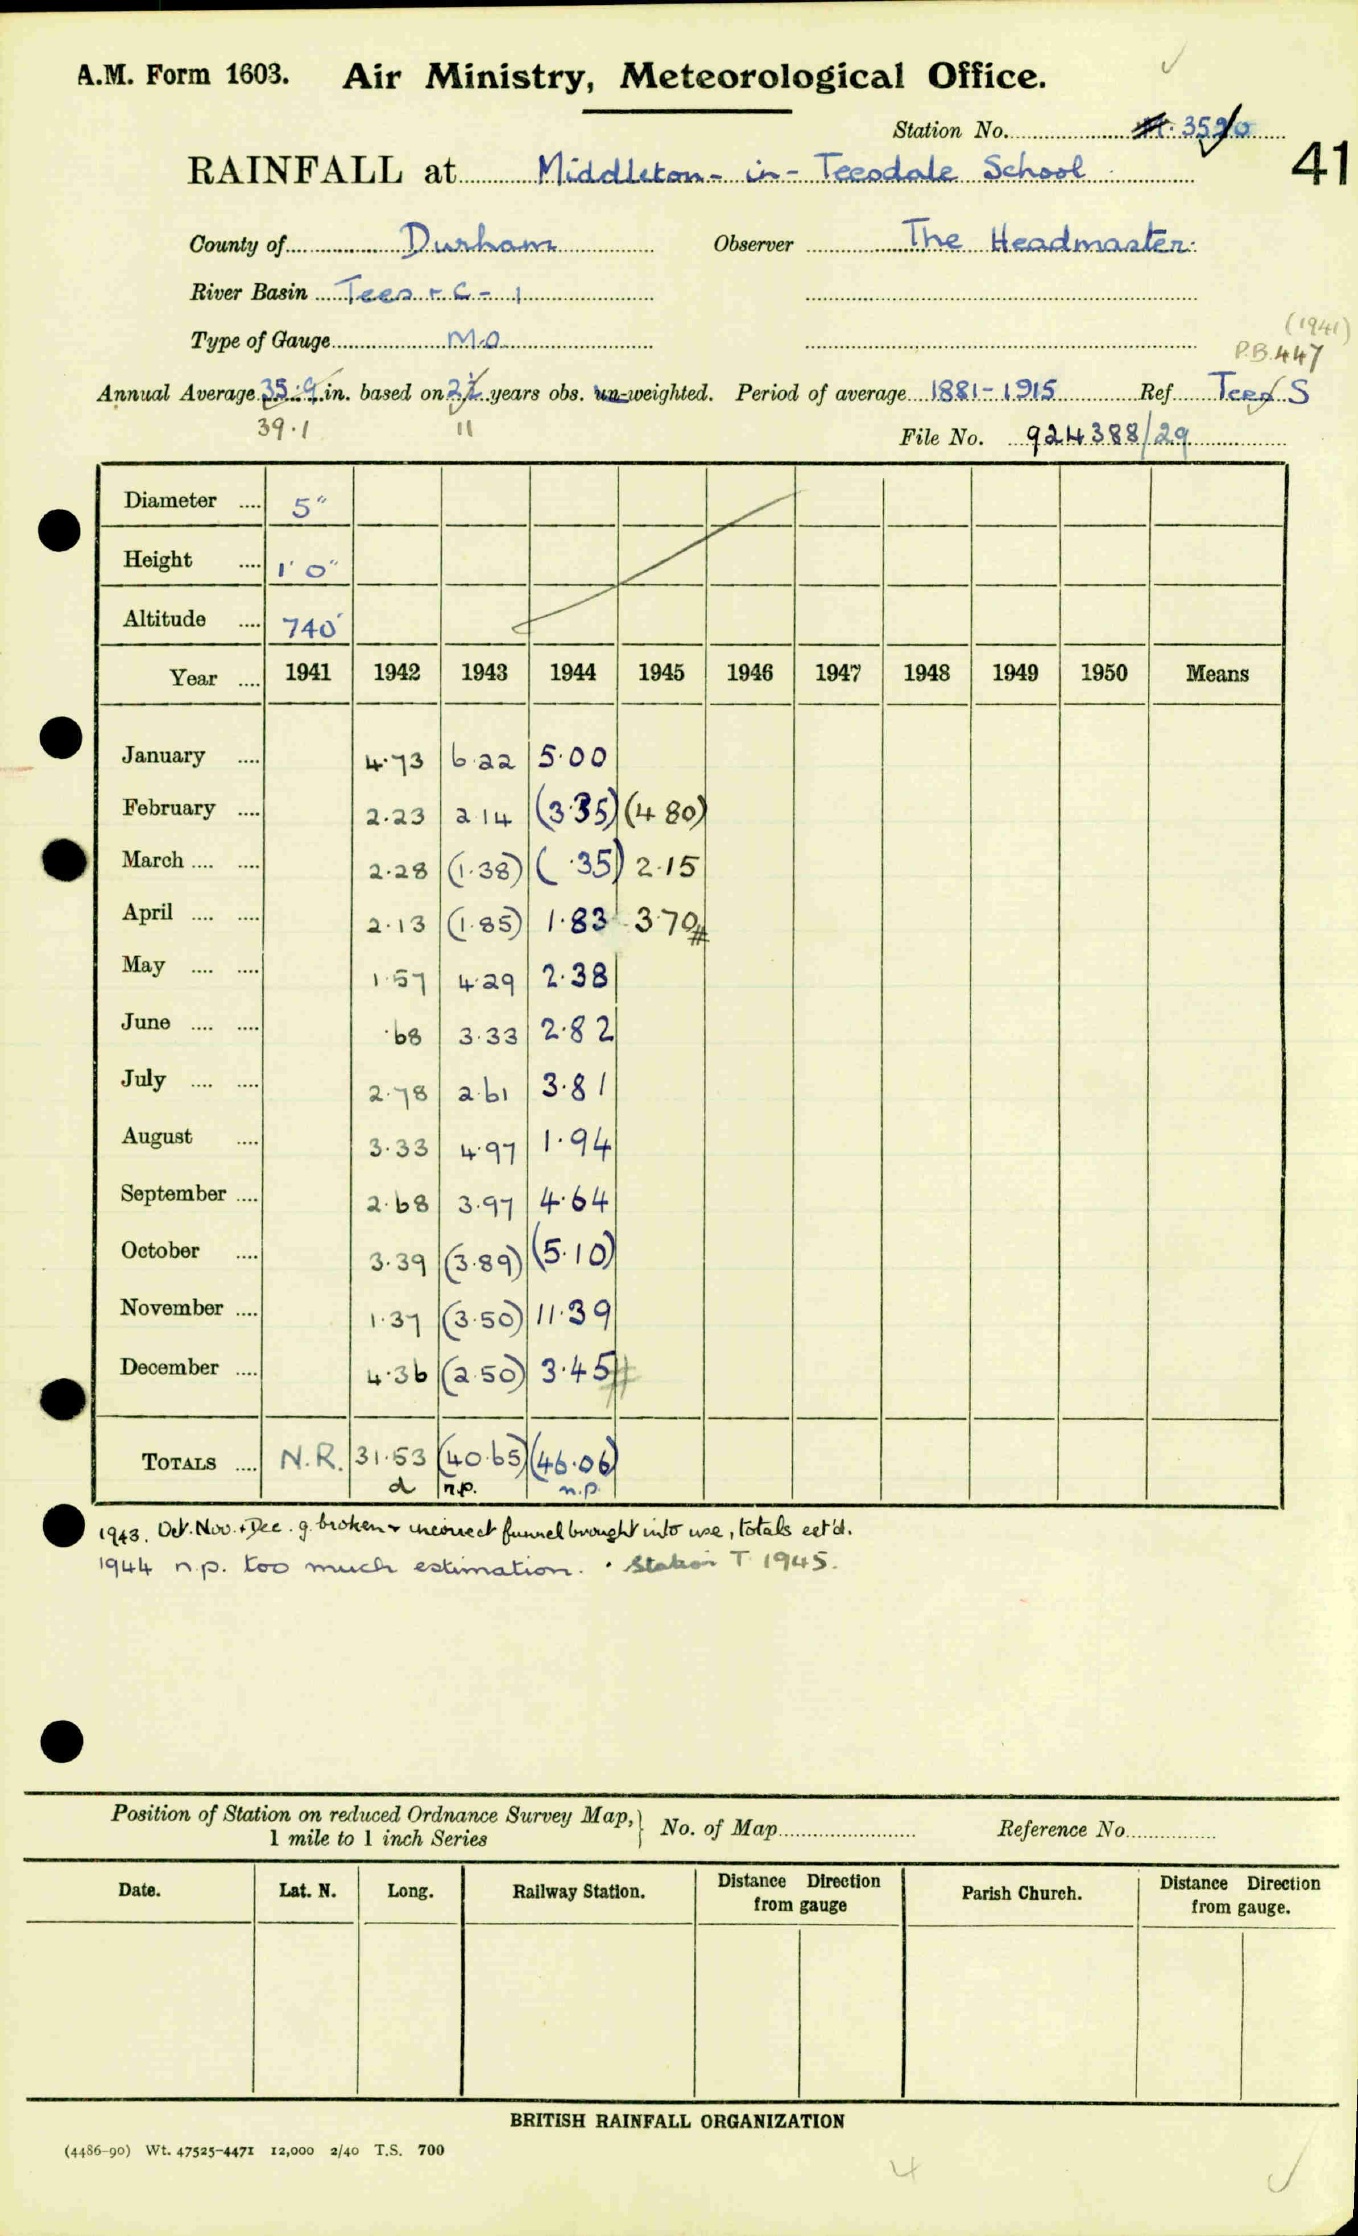 A.M. Form 1603. Air Ministry, Meteorological Office.
Station No. 3590
41
RAINFALL at Middleton-in-Teesdale School
County of Durham Observer The Headmaster.
River Basin Tees - C - 1
(1941)
Type of Gauge M.O.
P.B. 447
Annual Average 35.9 in. based on years obs. un-weighted. Period of average 1881-1915 Ref Tees S
39.1 11
File No. 924388/29
Diameter .... 5"
Height .... 1' 0"
Altitude .... 740'
Year .... 1941 1942 1943 1944 1945 1946 1947 1948 1949 1950 Means
January .... 4.73 6.22 5.00
February .... 2.23 2.14 (3.35) (4.80)
March .... .... 2.28 (1.38) (.35) 2.15
April .... .... 2.13 (1.85) 1.83 3.70 #
May .... .... 1.57 4.29 2.38
June .... .... .68 3.33 2.82
July .... .... 2.78 2.61 3.81
August .... 3.33 4.97 1.94
September .... 2.68 3.97 4.64
October .... 3.39 (3.89) (5.10)
November .... 1.37 (3.50) 11.39
December .... 4.36 (2.50) 3.45 #
TOTALS .... N.R. 31.53 (40.65) (46.06)
d n.p. n.p.
1943. Oct. Nov. + Dec. g. broken + incorrect funnel brought into use, totals est'd.
1944 n.p. too much estimation. • Station T. 1945.
Position of Station on reduced Ordnance Survey Map, 1 mile to 1 inch Series } No. of Map Reference No.
Date. Lat. N. Long. Railway Station. Distance Direction from gauge Parish Church. Distance Direction from gauge.
BRITISH RAINFALL ORGANIZATION
(4486-90) Wt. 47525-4471 12,000 2/40 T.S. 700
4